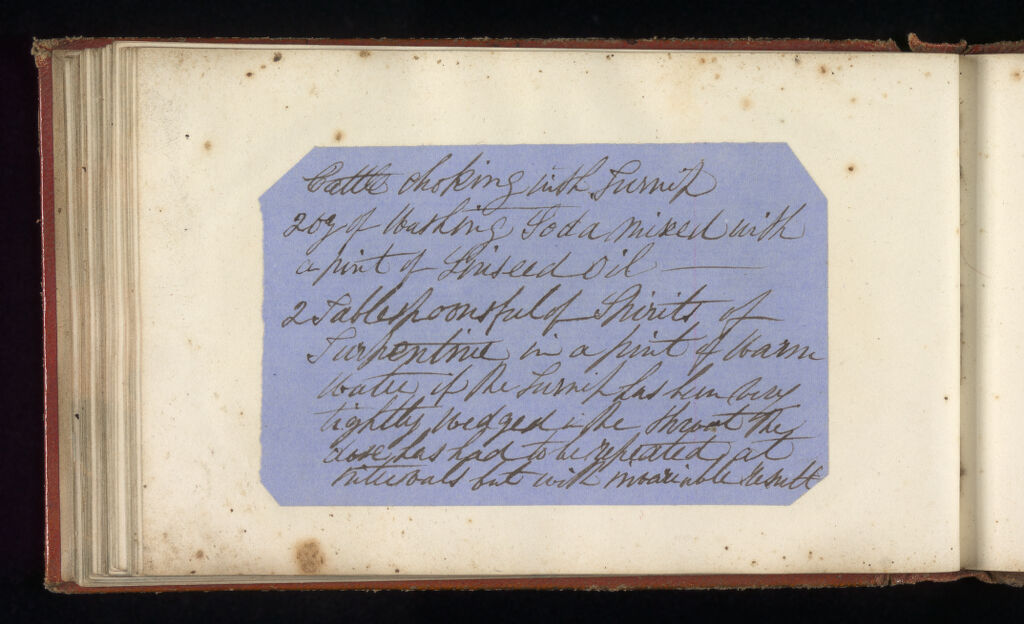 Cattle choking with Turnip
2 oz of Washing Soda mixed with
a pint of Linseed Oil —
2 Tablespoonsful of Spirits of
Turpentine in a pint of Warm
Water if the Turnip has been very
tightly wedged in the throat the
dose has had to be repeated at
intervals but with invariable result